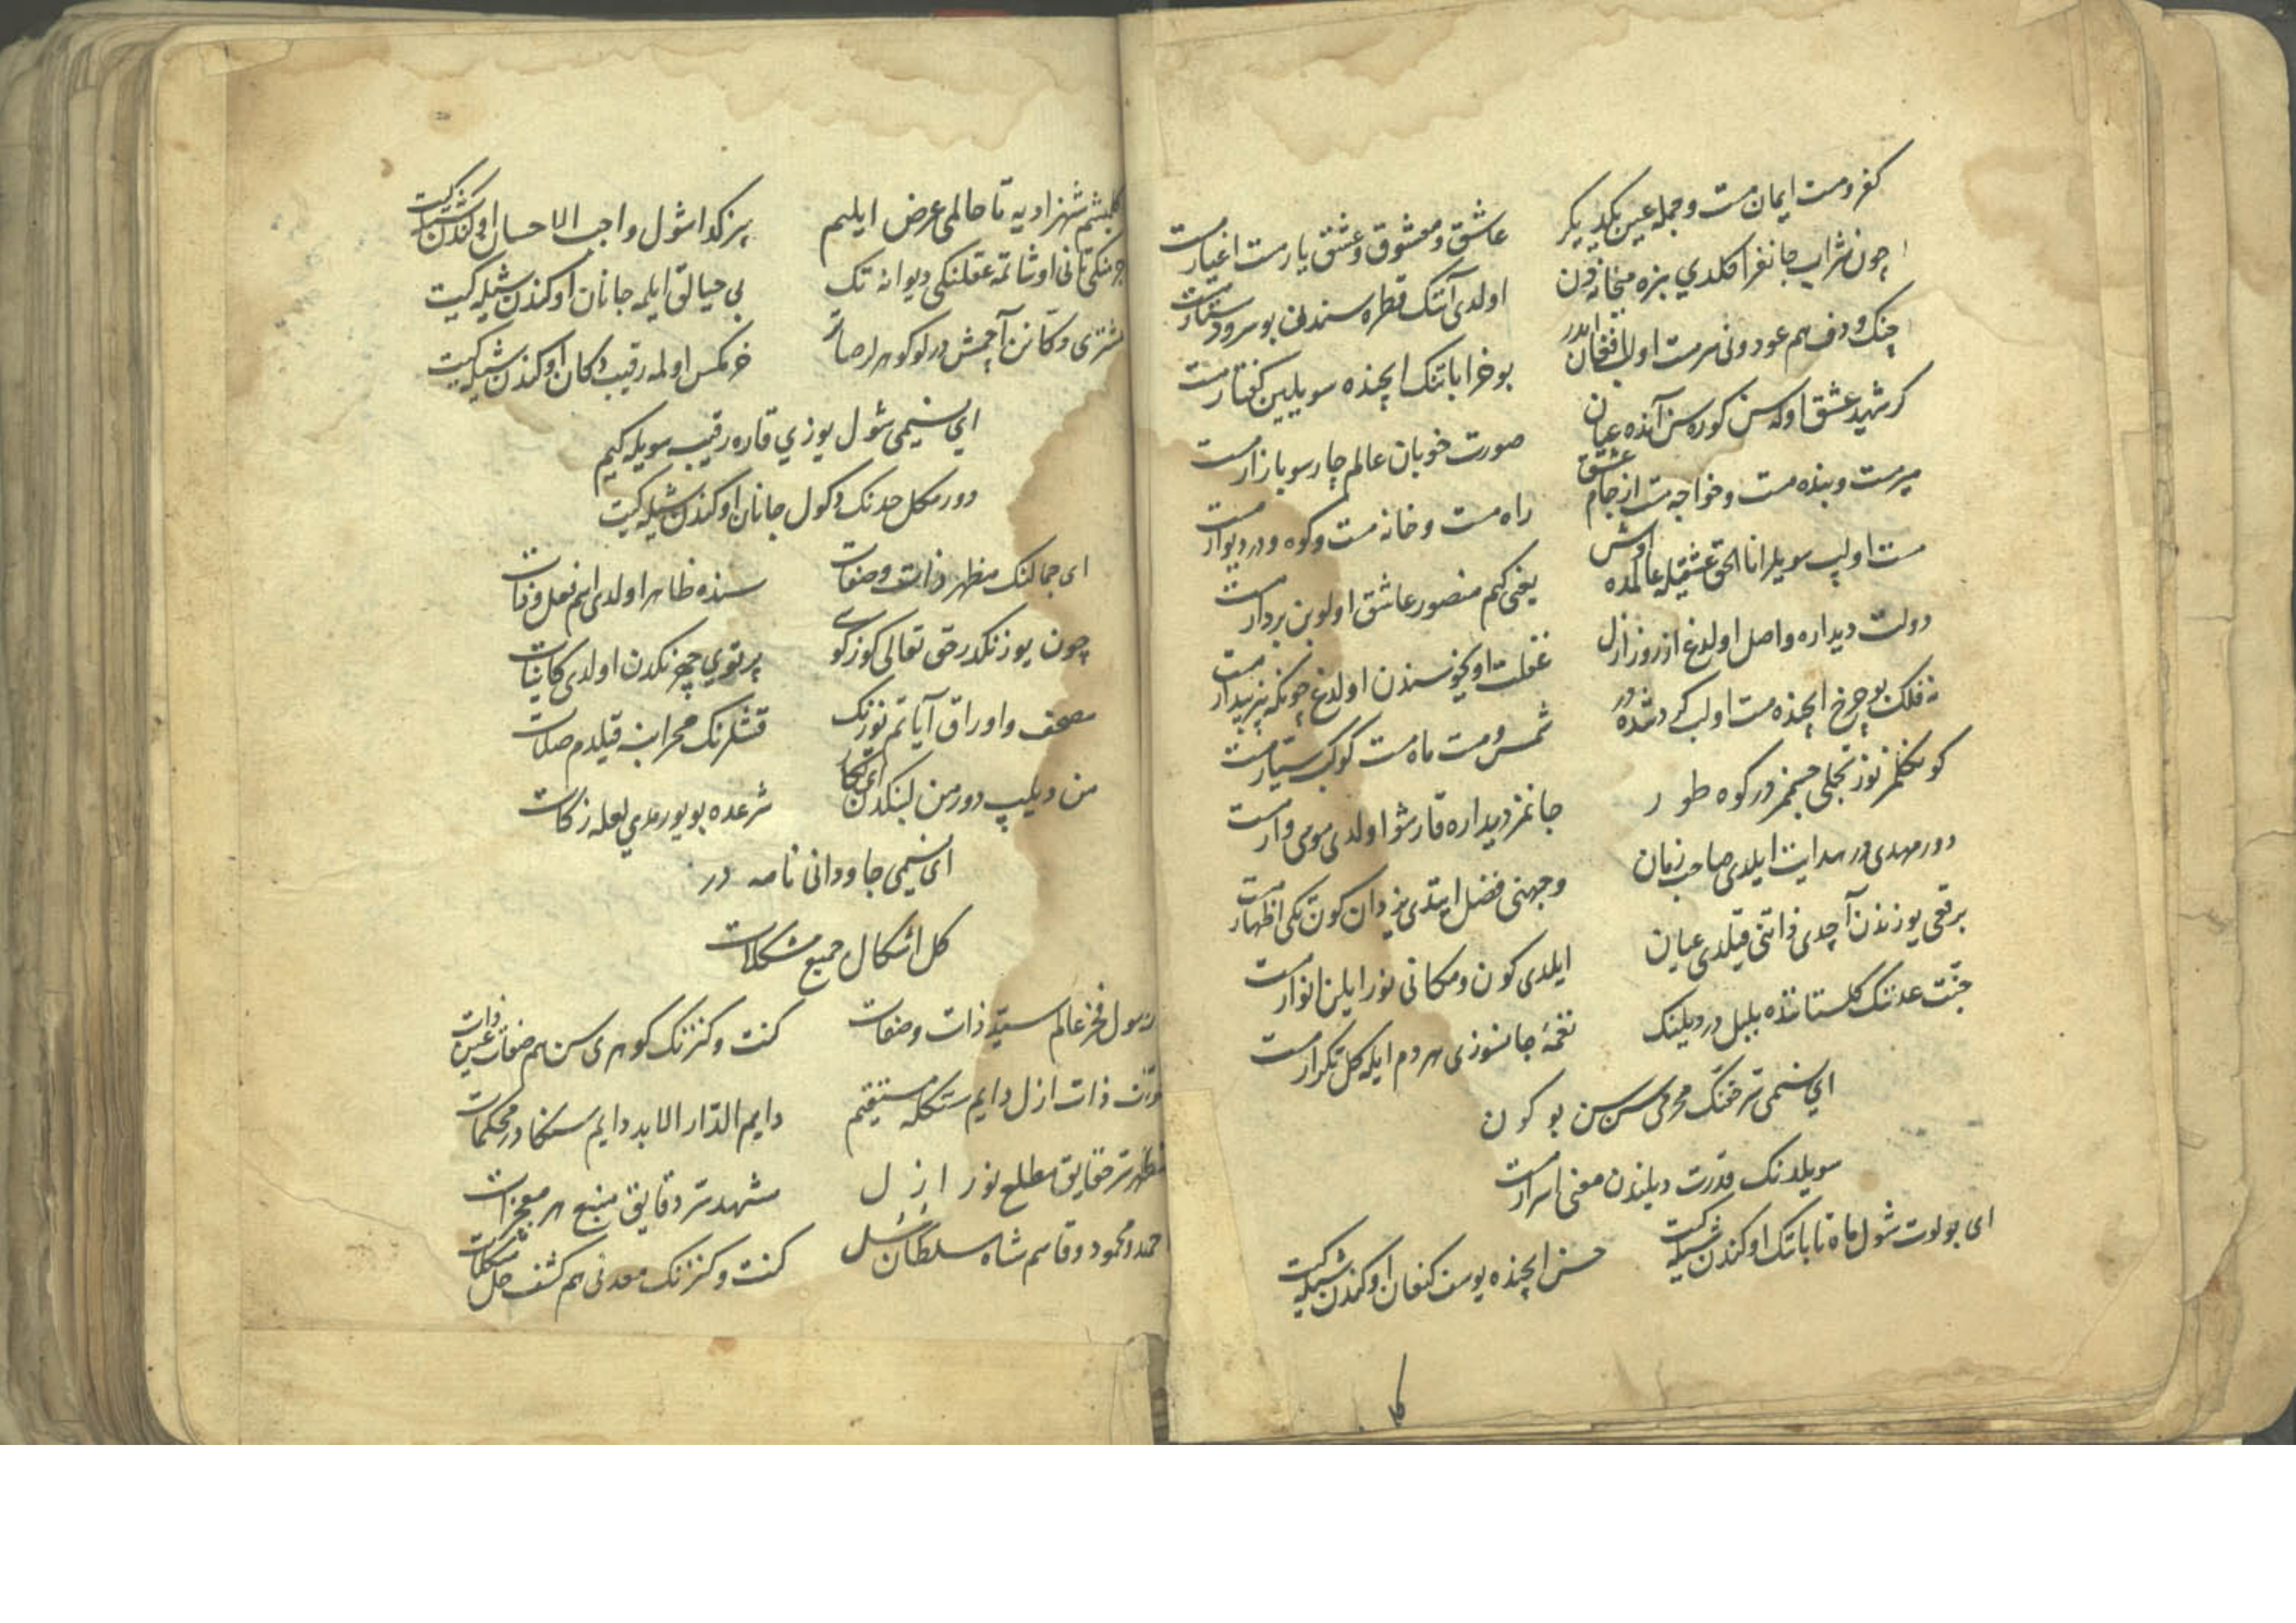 کفر و مست ایمان مست و جمله عین یکدیگر
عاشق و معشوق و عشق یار مست اغیار مست
چون شراب جانفرا کلدی بزه میخانه دن
اولدی آنک قطره سندن بو سرود ستار مست
چنک و دف هم عود و نی سرمست اولب افغان ایدر
بو خراباتنک ایچنده سویلین کفتار مست
کر شهید عشق اوله سن کوره سن آنده عیان
صورت خوبان عالم چارسو بازار مست
میر مست و بنده مست و خواجه مست از جام عشق
راه مست و خانه مست و کوه و در دیوار مست
مست اولیپ سویلر انا الحق عشقیله عالمده
یعنی کیم منصور عاشق اولوبن بردار مست
دولت دیداره واصل اولدغ از روز ازل
غفلت اویخوسندن اولدغ چونکه بیز بیدار مست
نه فلک بو چرخ ایچنده مست اولب کردشده در
شمس و مست ماه مست کوکب سیار مست
کوکلمز نوز تجلی جسمز در کوه طور
جانمز دیداره قارشو اولدی موسی وار مست
دور مهدی در هدایت ایلدی صاحب زمان
وجهنی فضل ایتدی یزدان کون تکی اظهار مست
برقعی یوزندن آچدی ذاتنی قیلدی عیان
ایلدی کون و مکانی نور ایلن انوار مست
جنت عدننک کلستاننده بلبل در دیلنک
نغمهٔ جانسوزی هردم ایله کل تکرار مست
ای نسیمی سر حقنک محرمی سن سن بو کون
سویلدنک قدرت دیلندن معنی اسرار مست
ای بولوت شول ماه تابانک اوکندن شیله کیت
حسن ایچنده یوسف کنعان اوکندن شیله کیت
کلمشم شهزادیه تا حالمی عرض ایلیم
بز کدا شول واجب الاحسان اوکندن شیله کیت
اوشاتمه عقلنکی دیوانه تک
بی حیالق ایلمه جانان اوکندن شیله کیت
مشتری دکانن آچمش در لوکوهر لر صاتر
خرمکس اولمه رقیب دکان اوکندن شیله کیت
ای نسیمی شول یوزی قاره رقیبه سویله کیم
دور مکل حدنک دکول جانان اوکندن شیله کیت
ای جمالنک مظهر ذات و صفات
سنده ظاهر اولدی اسم فعل و ذات
چون یوزنکدر حق تعالی کوزکوسی
پرتوی چهرنکدن اولدی کاینات
مصحف و اوراق آیاتم یوزنک
قشلرنک محرابنه قیلدم صلات
من دیلیپ دورمن لبنکدن ای نکار
شرعده بویوردی لعله زکات
ای نسیمی جاودانی نامه در
کل اشکال جمیع مشکلات
رسول فخر عالم سید ذات و صفات
کنت و کنزنک کوهری سن هم صفات عین ذات
ذات ازل دایم مستقیم
دایم الدار الابد دایم سنکا در محکمات
مظهر سر حقایق مطلع نور ازل
مشهد سر دقایق منبع هر معجزات
احمد و محمود و قاسم شاه سلطان رسل
کنت و کنزنک معدنی هم کشف حل مشکلات